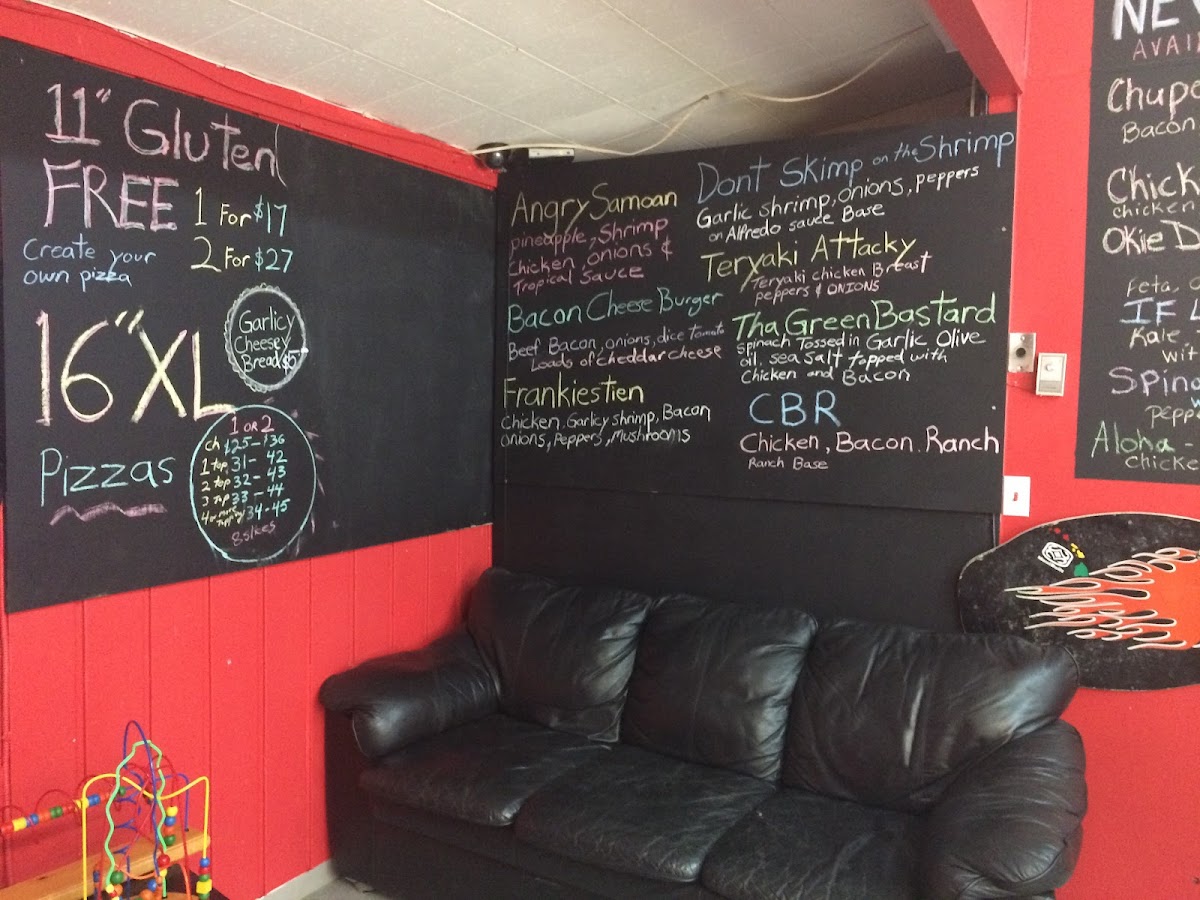 11" Gluten
FREE
1 For $17
2 For $27
Create your
own pizza
16" XL
Pizzas
Garlicy
Cheesey
Bread $5
1 OR 2
ch $25-$36
1 top 31-42
2 top 32-43
3 top 33-44
4 or more topping 34-45
8 slices
Angry Samoan
pineapple, Shrimp
Chicken, onions &
Tropical Sauce
Bacon Cheese Burger
Beef Bacon, onions, dice Tomato
Loads of cheddar cheese
Frankiestien
Chicken, Garlicy shrimp, Bacon
onions, Peppers, Mushrooms
Dont Skimp on the Shrimp
Garlic shrimp, onions, peppers
on Alfredo sauce Base
Teryaki Attacky
Teryaki chicken Breast
peppers & ONIONS
Tha Green Bastard
Spinach Tossed in Garlic Olive
oil. sea salt topped with
Chicken and Bacon
CBR
Chicken, Bacon. Ranch
Ranch Base
NEW
AVAI
Chupe
Bacon
Chick
chicken
Okie D
Feta,
IF
Kale,
wit
Spina
w
pepp
Aloha -
chicke